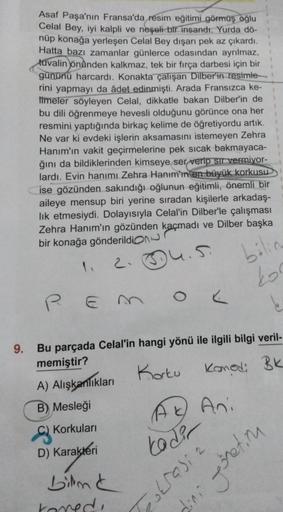 Asaf Paşa'nın Fransa'da resim eğitimi görmüş oğlu
Celal Bey, iyi kalpli ve neşeli bir insandı. Yurda dö-
nüp konağa yerleşen Celal Bey dışarı pek az çıkardı.
Hatta bazı zamanlar günlerce odasından ayrılmaz,
tuvalin önünden kalkmaz, tek bir fırça darbesi için bir
gününü harcardı. Konakta çalışan Dilber'in resimle-
rini yapmayı da âdet edinmişti. Arada Fransızca ke-
limeler söyleyen Celal, dikkatle bakan Dilber'in de
bu dili öğrenmeye hevesli olduğunu görünce ona her
resmini yaptığında birkaç kelime de öğretiyordu artık.
Ne var ki evdeki işlerin aksamasını istemeyen Zehra
Hanım'ın vakit geçirmelerine pek sıcak bakmayaca-
ğını da bildiklerinden kimseye ser verip sır vermiyor-
lardı. Evin hanımı Zehra Hanım'ın en büyük korkusu
ise gözünden sakındığı oğlunun eğitimli, önemli bir
aileye mensup biri yerine sıradan kişilerle arkadaş-
lık etmesiydi. Dolayısıyla Celal'in Dilber'le çalışması
Zehra Hanım'ın gözünden kaçmadı ve Dilber başka
bir konağa gönderildi
1. 2. 3. 4. 5.
bilin
P E M O K
9. Bu parçada Celal'in hangi yönü ile ilgili bilgi veril-
memiştir?
Korku Komedi BK
A) Alışkanlıkları
B) Mesleği
AK Anı
C) Korkuları
kadir
D) Karakteri
bilim
komedi